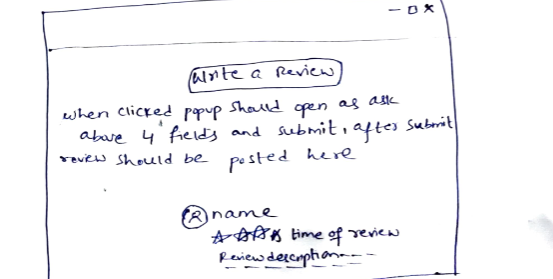 Write a Review
when clicked popup should open as ask
above 4 fields and submit, after submit
review should be posted here
R name
time of review
Review description